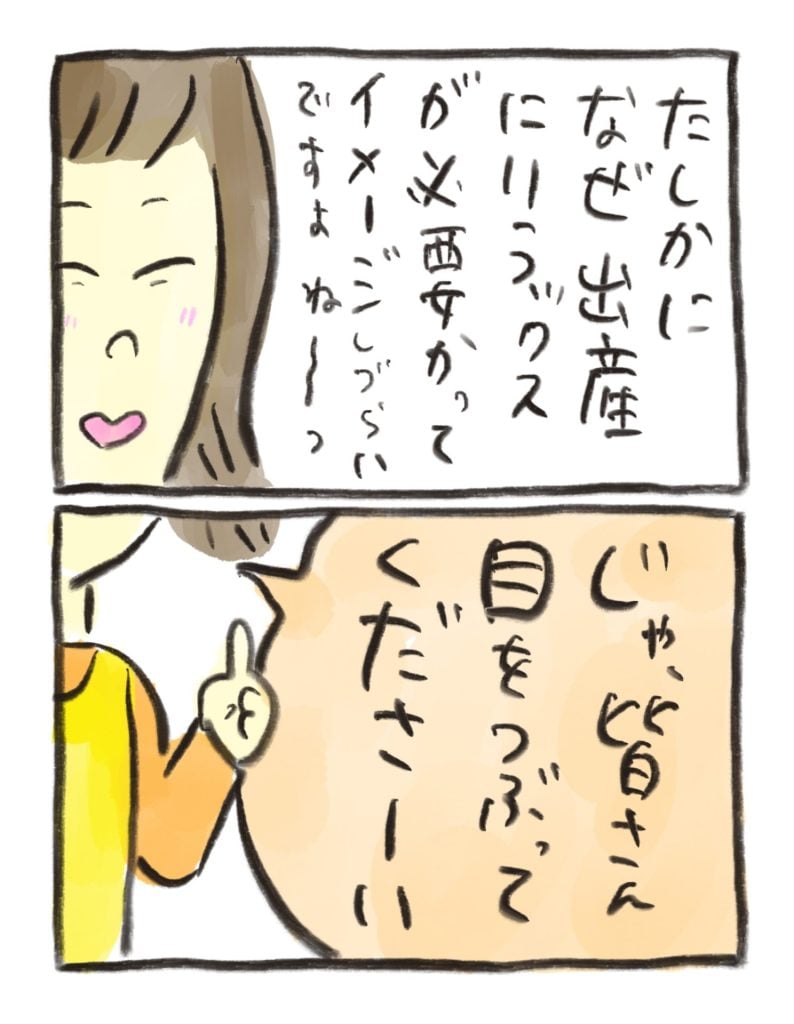 たしかに
なぜ出産
にリラックス
が必要かって
イメージしづらい
ですよねーっ
じゃ、皆さん
目をつぶって
くださーい